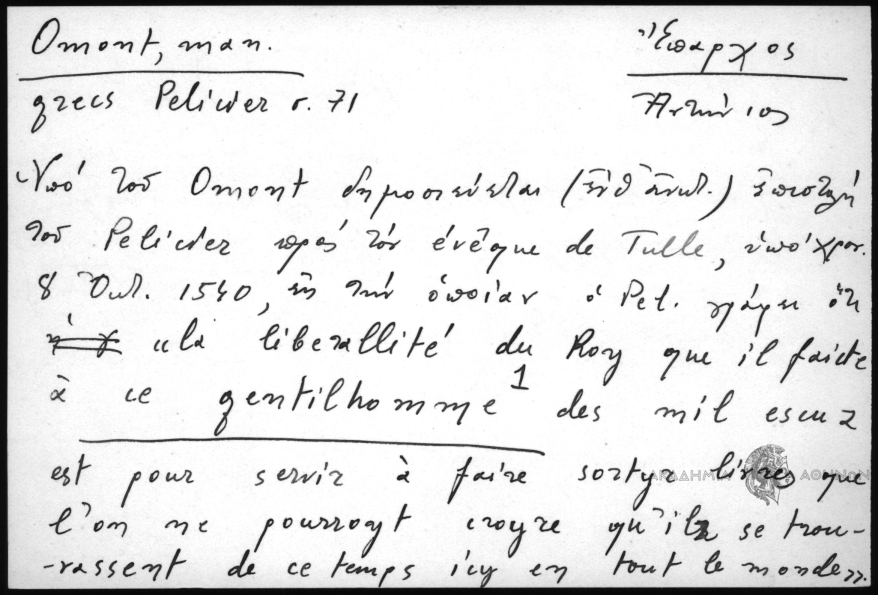 Omont, man. Ἔπαρχος
grecs Pelicier σ. 71 Ἀντώνιος
Ὑπό τοῦ Omont δημοσιεύεται (ἔνθ' ἀνωτ.) ἐπιστολή
τοῦ Pelicier πρός τόν évêque de Tulle, ὑπό χρον.
8 Ὀκτ. 1540, εἰς τήν ὁποίαν ὁ Pel. γράφει ὅτι
«la liberallité du Roy que il faicte
à ce gentilhomme 1 des mil escuz
est pour servir à faire sortyr livres que
l'on ne pourroyt croyre qu'ilz se trou-
-vassent de ce temps icy en tout le monde».
ΑΚΑΔΗΜΙΑ ΑΘΗΝΩΝ